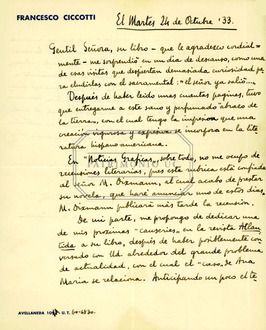 FRANCESCO CICCOTTI
El Martes 24 de Octubre '33.
Gentil Señora, su libro – que le agradezco cordial-
mente – me sorprendió en un día de descanso, como una
de esas visitas que despiertan demasiada curiosidad para
eludirlas con el sacramental: «el señor ya salió».
Después de haber leído unas cuantas páginas, tuve
que entregarme a este sano y perfumado abrazo de
la tierra, con el cual tengo la impresión que una
creación vigorosa y se incorpora en la lite-
ratura hispano americana.
En "Noticias Gráficas", sobre todo, no me ocupo de
recensiones literarias, pues esta rubrica está confiada
al señor M. Dizmann, al cual acabo de prestar
su novela, que hará anunciar uno de estos días.
M. Dizmann publicará más tarde la recensión.
De mi parte, me propongo de dedicar una
de mis proximas "causeries" en la revista Atlan-
tida a su libro, después de haber posiblemente con-
versado con Ud. alrededor del grande problema
de actualidad, con el cual el "caso" de Ana
Maria se relaciona. Anticipando un poco el te
PATRIMONIO
AVELLANEDA U. T.